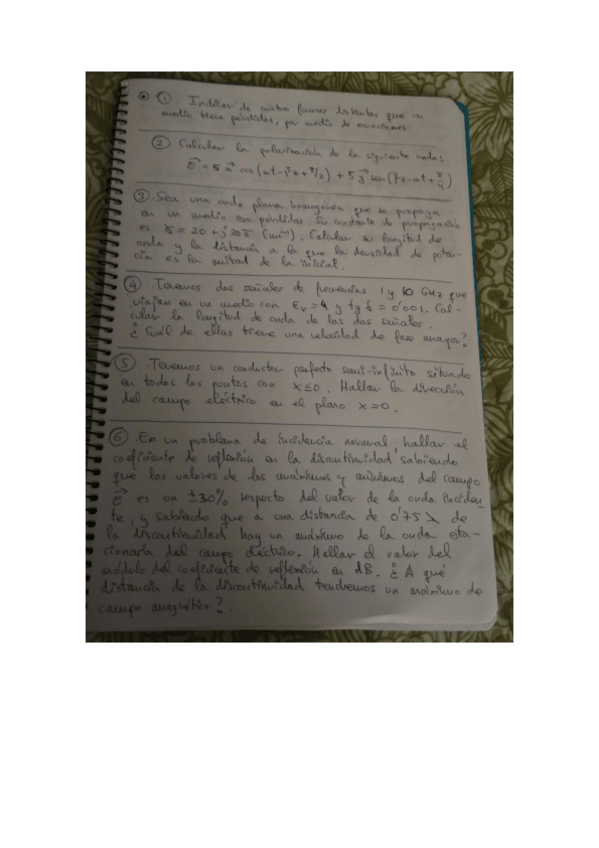 ① Indicar de cuatro formas distintas que un
medio tiene pérdidas, por medio de ecuaciones.
② Calcular la polarización de la siguiente onda:
E = 5 x cos (ωt - βz + π/2) + 5 y sen (βz - ωt + π/4).
③ Sea una onda plana homogénea que se propaga
en un medio con pérdidas. Su constante de propagación
es γ = 20 + j30π (m⁻¹). Calcular su longitud de
onda y la distancia a la que la densidad de poten-
cia es la mitad de la inicial.
④ Tenemos dos señales de frecuencias 1 y 10 GHz que
viajan en un medio con εr = 4 y tg δ = 0'001. Cal-
cular la longitud de onda de las dos señales.
¿Cuál de ellas tiene una velocidad de fase mayor?
⑤ Tenemos un conductor perfecto semi-infinito situado
en todos los puntos con x ≤ 0. Hallar la dirección
del campo eléctrico en el plano x = 0.
⑥ En un problema de incidencia normal, hallar el
coeficiente de reflexión en la discontinuidad sabiendo
que los valores de los máximos y mínimos del campo
E es un ±30% respecto del valor de la onda inciden
te, y sabiendo que a una distancia de 0'75 λ de
la discontinuidad hay un máximo de la onda esta-
cionaria del campo eléctrico. Hallar el valor del
módulo del coeficiente de reflexión en dB. ¿A qué
distancia de la discontinuidad tendremos un máximo de
campo magnético?.